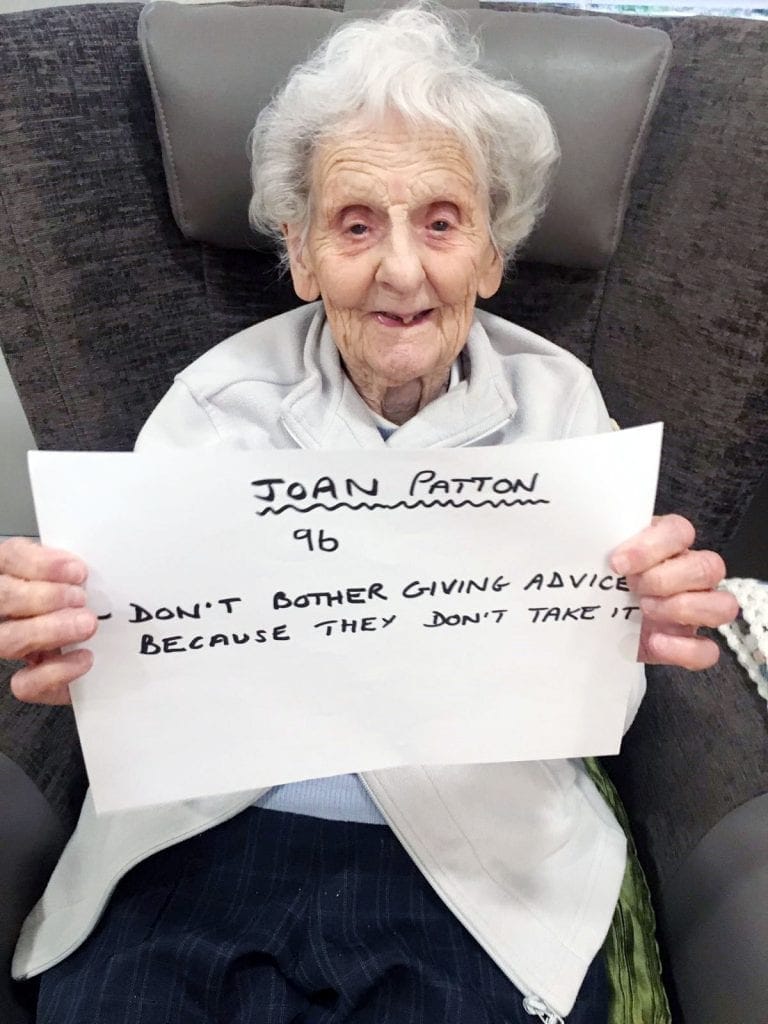 JOAN PATTON
96
- DON'T BOTHER GIVING ADVICE
BECAUSE THEY DON'T TAKE IT